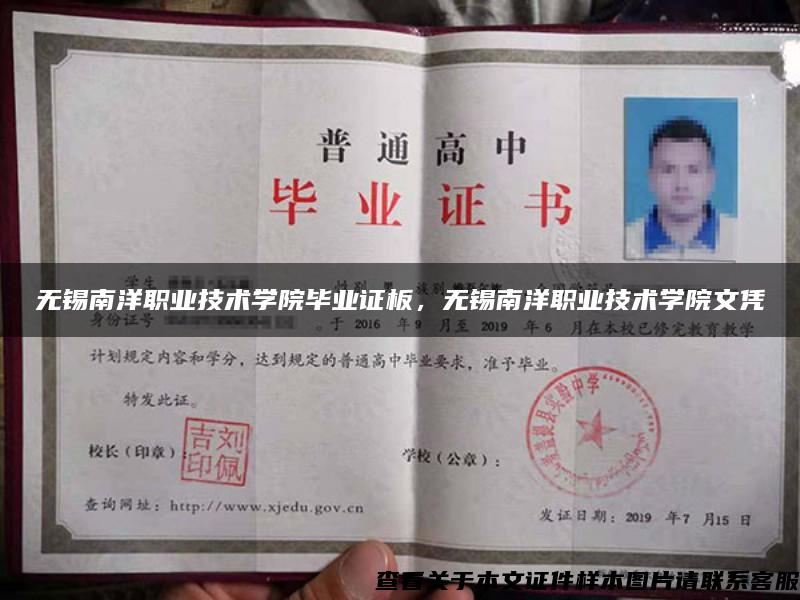 普通高中
毕业证书
学生 性别 男
无锡南洋职业技术学院毕业证板，无锡南洋职业技术学院文凭
身份证号 。于 2016 年 9 月至 2019 年 6 月在本校已修完教育教学
计划规定内容和学分，达到规定的普通高中毕业要求，准予毕业。
特发此证。
校长（印章）：
吉刘
印佩
学校（公章）：
实验中学
查询网址：http://www.xjedu.gov.cn
发证日期：2019 年7 月15 日
查看关于本文证件样本图片请联系客服